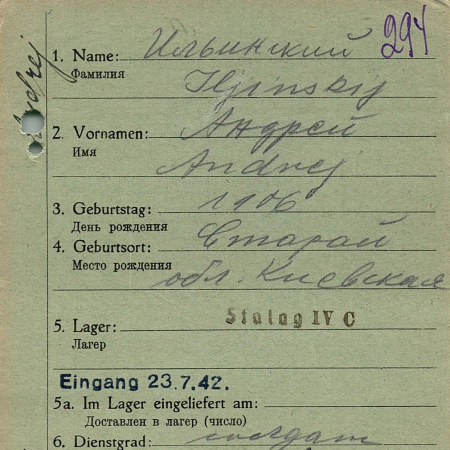 294
Andrej
1. Name: Ильинский
Фамилия
Iljinskij
2. Vornamen: Андрей
Имя
Andrej
3. Geburtstag: 1906
День рождения
4. Geburtsort: Старай
Место рождения обл. Киевская
5. Lager: Stalag IV C
Лагер
Eingang 23.7.42.
5a. Im Lager eingeliefert am:
Доставлен в лагер (число)
6. Dienstgrad: солдат